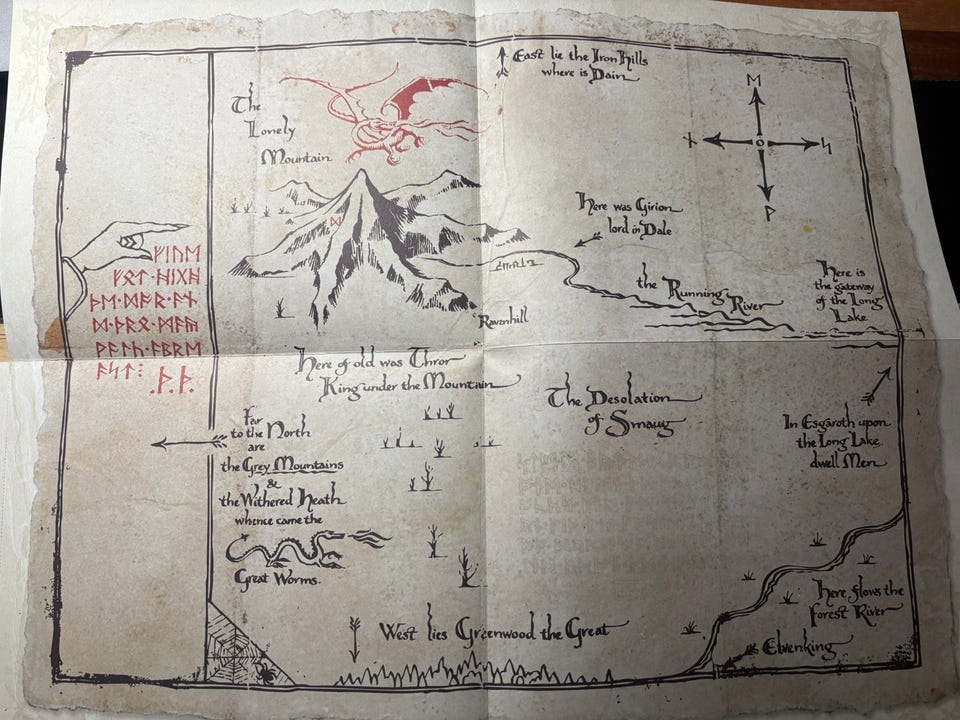 East lie the Iron Hills
where is Dain
The
Lonely
Mountain
ᛖ
ᚾ
ᛋ
ᚹ
ᛞ
Here was Girion
lord in Dale
ᚠᛁᚢᛖ
ᚠᚩᛏ·ᚻᛁᚷᚻ
ᚦᛖ·ᛞᚫᚱ·ᚪᚾ
ᛞ·ᚦᚱᛟ·ᛗᚪᚣ
ᚹᚪᛚᚳ·ᚪᛒᚱᛖ
ᚪᛋᛏ⁝
.ᚦ.ᚦ.
the Running River
Here is
the gateway
of the Long
Lake
Ravenhill
Here of old was Thror
King under the Mountain
The Desolation
of Smaug
Far
to the North
are
the Grey Mountains
&
the Withered Heath
whence came the
Great Worms.
In Esgaroth upon
the Long Lake
dwell Men
Here flows the
Forest River
Elvenking
West lies Greenwood the Great